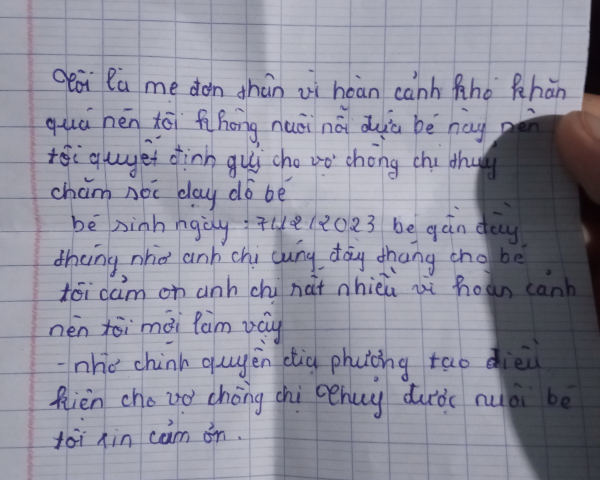 Tôi là mẹ đơn thân vì hoàn cảnh khó khăn
quá nên tôi không nuôi nổi đứa bé này nên
tôi quyết định gửi cho vợ chồng chị thuỷ
chăm sóc dạy dỗ bé
bé sinh ngày: 7/12/2023 bé gần đầy
tháng nhờ anh chị cúng đầy tháng cho bé
tôi cảm ơn anh chị rất nhiều vì hoàn cảnh
nên tôi mới làm vậy
- nhờ chính quyền địa phương tạo điều
kiện cho vợ chồng chị Thuỷ được nuôi bé
tôi xin cảm ơn.